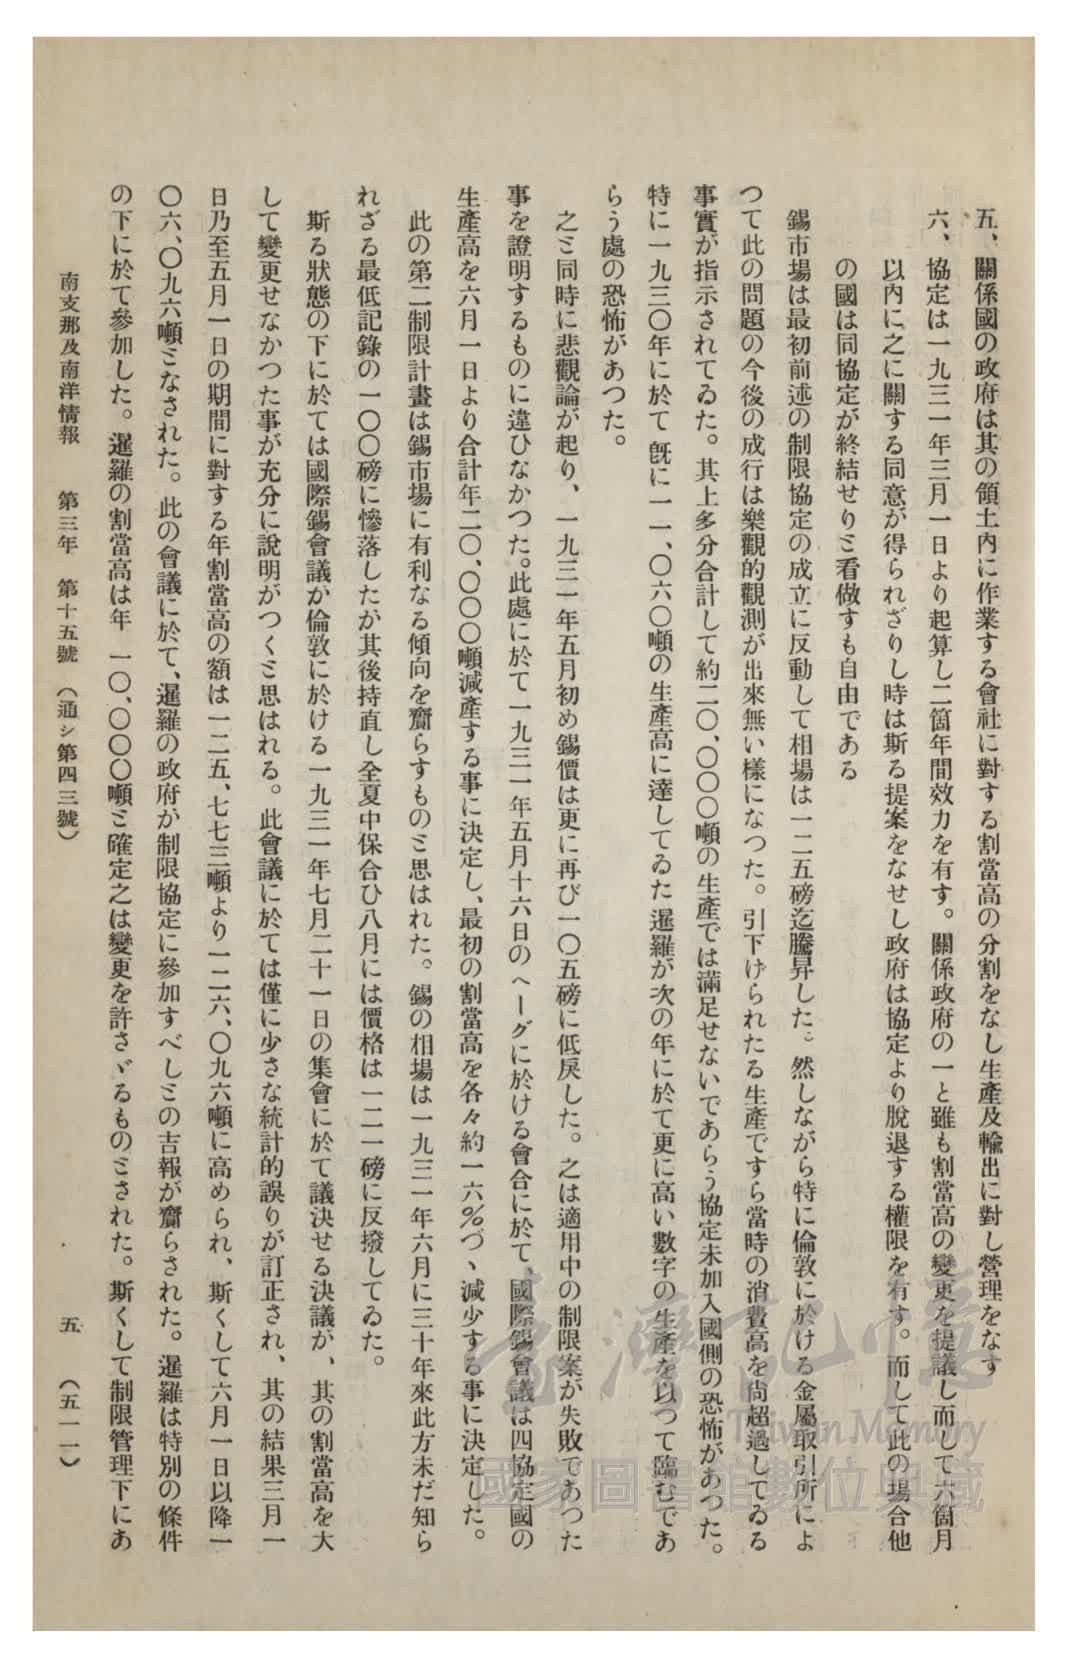 五、關係國の政府は其の領土內に作業する會社に對する割當高の分割をなし生產及輸出に對し營理をなす
六、協定は一九三一年三月一日より起算し二箇年間效力を有す。關係政府の一と雖も割當高の變更を提議し而して六箇月
以內に之に關する同意が得られざりし時は斯る提案をなせし政府は協定より脫退する權限を有す。而して此の場合他
の國は同協定が終結せりミ看做すも自由である
錫市場は最初前述の制限協定の成立に反動して相場は一二五磅迄騰昇した。然しながら特に倫敦に於ける金屬取引所によ
つて此の問題の今後の成行は樂觀的觀測が出來無い樣になつた。引下げられたる生產ですら當時の消費高を尙超過してゐる
事實が指示されてゐた。其上多分合計して約二〇、〇〇〇噸の生產では滿足せないであらう協定未加入國側の恐怖があつた。
特に一九三〇年に於て旣に一一、〇六〇噸の生產高に達してゐた暹羅が次の年に於て更に高い數字の生產を以つて臨むであ
らう處の恐怖があつた。
之ミ同時に悲觀論が起り、一九三一年五月初め錫價は更に再び一〇五磅に低戾した。之は適用中の制限案が失敗であつた
事を證明するものに違ひなかつた。此處に於て一九三一年五月十六日のヘーグに於ける會合に於て、國際錫會議は四協定國の
生產高を六月一日より合計年二〇、〇〇〇噸減產する事に決定し、最初の割當高を各々約一六%づヽ減少する事に決定した。
此の第二制限計畫は錫市場に有利なる傾向を齎らすものミ思はれた。錫の相場は一九三一年六月に三十年來此方未だ知ら
れざる最低記錄の一〇〇磅に慘落したが其後持直し全夏中保合ひ八月には價格は一二一磅に反撥してゐた。
斯る狀態の下に於ては國際錫會議が倫敦に於ける一九三一年七月二十一日の集會に於て議決せる決議が、其の割當高を大
して變更せなかつた事が充分に說明がつくミ思はれる。此會議に於ては僅に少さな統計的誤りが訂正され、其の結果三月一
日乃至五月一日の期間に對する年割當高の額は一二五、七七三噸より一二六、〇九六噸に高められ、斯くして六月一日以降一
〇六、〇九六噸ミなされた。此の會議に於て、暹羅の政府が制限協定に參加すべしミの吉報が齎らされた。暹羅は特別の條件
の下に於て參加した。暹羅の割當高は年一〇、〇〇〇噸ミ確定之は變更を許さゞるものミされた。斯くして制限管理下にあ
南支那及南洋情報 第三年 第十五號 (通シ第四三號) 五 (五一一)
臺灣記憶
Taiwan Memory
國家圖書館數位典藏